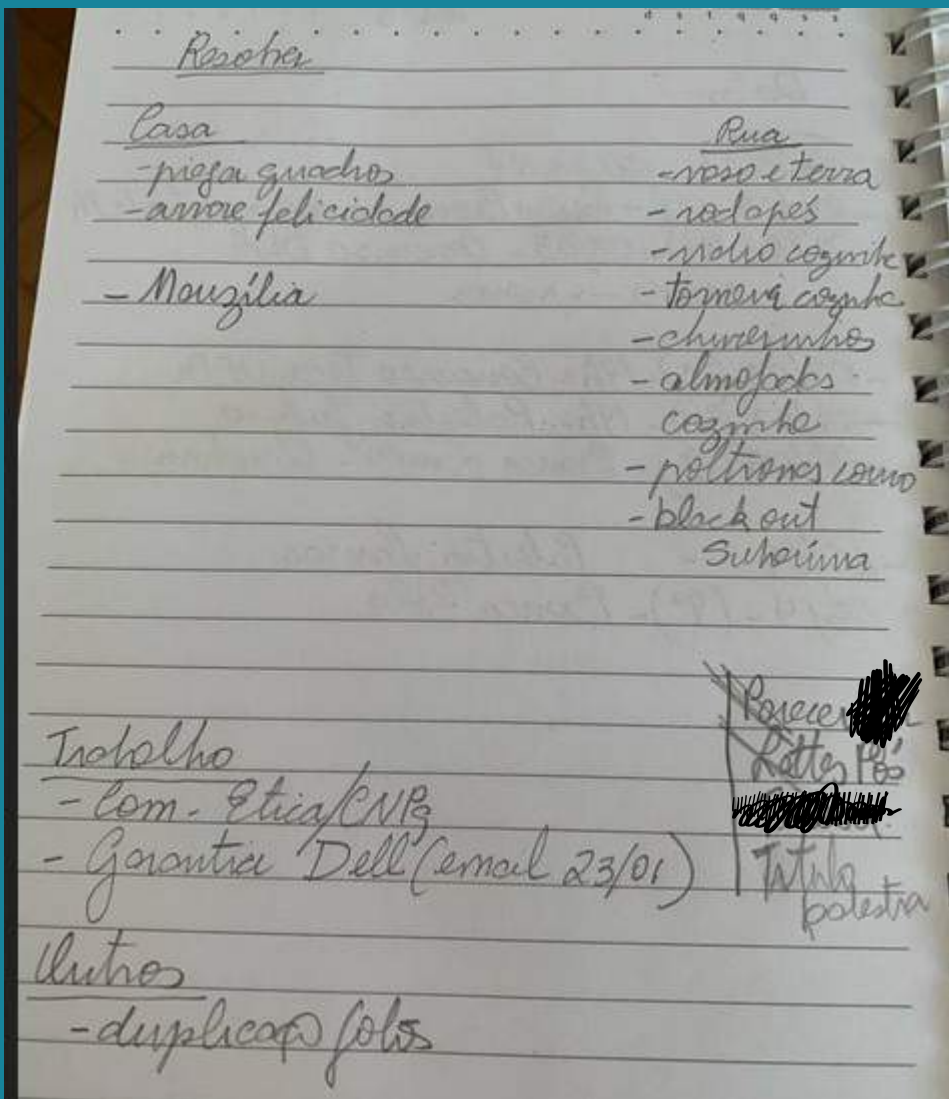 Resolver
Casa
- prega quadros
- arvore felicidade
- Mauzília
Rua
- vaso e terra
- rodapés
- vidro cozinha
- torneira cozinha
- chuveirinhos
- almofadas
cozinha
- poltronas couro
- black out
Trabalho
- Com. Etica/CNPq
- Garantia Dell (email 23/01)
Parecer
Lattes Pós
Título
palestra
Outros
- duplicação